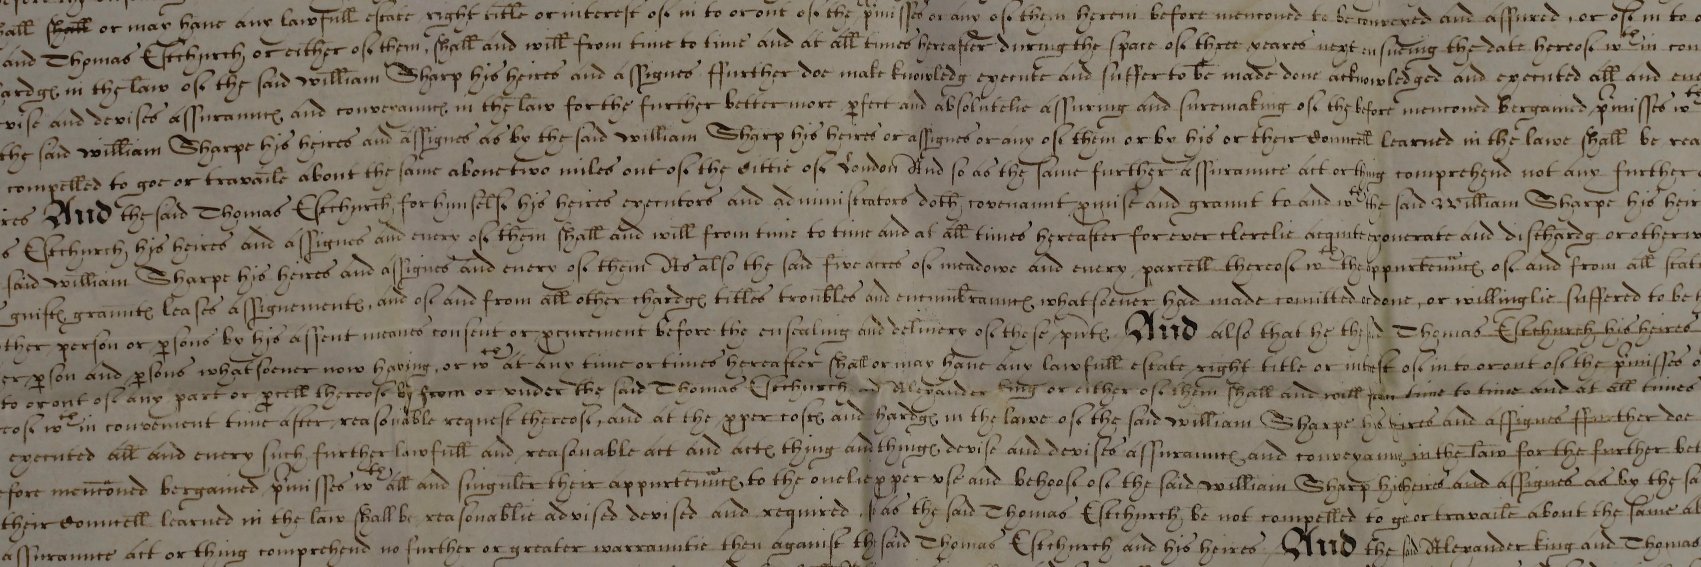 shall or may have any lawfull estate right title or interest of in to or out of the p'misses or any of them herein before menconed to be conveyed and assured, or of in to
and Thomas Estchurch or either of them, shall and will from time to time and at all times hereafter during the space of three yeares next ensueing the date hereof wth in con
in the law of the said William Sharp his heires and assignes ffurther doe make knowledg execute and suffer to be made done acknowledged and executed all and eve
vise and devises assurances and conveyances in the law for the further better more p'fect and absolutelie assuring and suremaking of the before menconed bergained p'misses wth
the said William Sharpe his heires and assignes as by the said William Sharp his heires or assignes or any of them or by his or their Councell learned in the lawe shall be rea
compelled to goe or travaile about the same above two miles out of the Cittie of London And so as the same further assurance act or thing comprehend not any further
ires And the said Thomas Estchurch, for himselfe his heires executors and administrators doth covenaunt p'mise and graunt to and wth the said William Sharpe his heir
s Estchurch, his heires and assignes and every of them shall and will from time to time and at all times hereafter for ever clerelie acquite exonerate and dischardg or otherw
said William Sharpe his heires and assignes and every of them As also the said five acres of meadowe and every parcell thereof wth the appurtenncs of and from all state
guifts graunts leases assignements, and of and from all other chardgs titles troubles and encumbraunces whatsoever had made comitted or done, or willinglie suffered to be
ther person or p'sons by his assent meanes consent or p'curement before the ensealing and delivery of these p'nts. And also that he the said Thomas Estchurch his heires
er p'son and p'sons whatsoever now having, or wch at any time or times hereafter shall or may have any lawfull estate right title or intrest of in to or out of the p'misses
to or out of any part or p'cell thereof by from or under the said Thomas Estchurch and Alexander King or either of them shall and will from time to time and at all times
eof wth in convenient time after reasonable request thereof, and at the p'per costs and chardgs in the lawe of the said William Sharpe his heires and assignes ffurther doe
executed all and every such further lawfull and reasonable act and acts thing and things devise and devises assurances and conveyances in the law for the further bet
efore menconed bergained p'misses wth all and singuler their appurtenncs, to the onelie p'per use and behoofe of the said William Sharp his heires and assignes as by the sa
their Councell learned in the law shall be reasonablie advised devised and required, so as the said Thomas Estchurch, be not compelled to goe or travaile about the same ab
assuraunce act or thing comprehend no further or greater warrauntie then against the said Thomas Estchurch and his heires. And the said Alexander King and Thomas